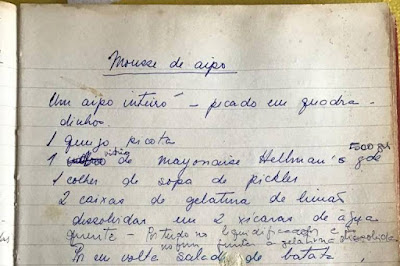 Mousse de aipo
Um aipo inteiro – picado em quadra-
dinhos
1 queijo picota
1 vidro de mayonaise Hellman's gde 500 grs
1 colher de sopa de pickles
2 caixas de gelatina de limão
dissolvidas em 2 xicaras de água
quente – Por tudo no liquidificador e
no fim juntar a gelatina dissolvida
Por em volta salada de batata